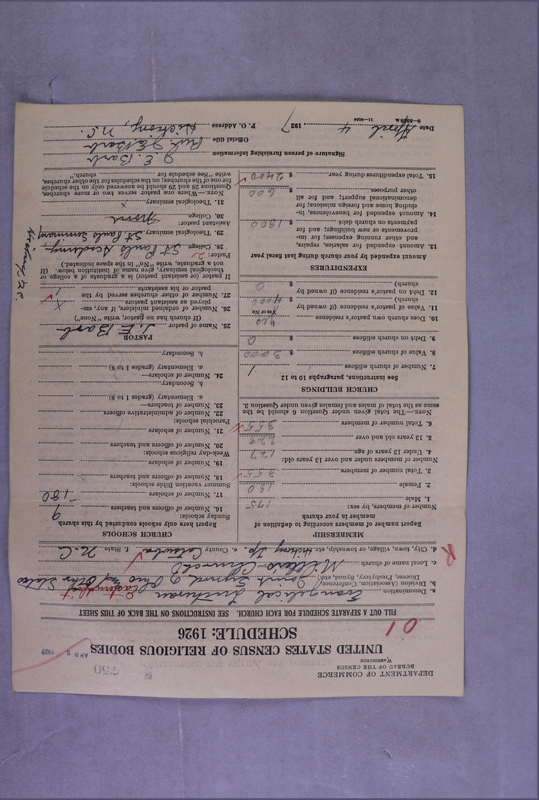 DEPARTMENT OF COMMERCE
BUREAU OF THE CENSUS
WASHINGTON
750
APR 2 1927
UNITED STATES CENSUS OF RELIGIOUS BODIES
SCHEDULE: 1926
01
FILL OUT A SEPARATE SCHEDULE FOR EACH CHURCH. SEE INSTRUCTIONS ON THE BACK OF THIS SHEET
a. Denomination Evangelical Lutheran
b. Division (Association, Conference, Diocese, Presbytery, Synod, etc.) Joint Synod of Ohio and Other States
c. Local name of church Millers Church
d. City, town, village, or township, etc. Hickory Tp. e. County Catawba f. State N.C.
MEMBERSHIP
Report number of members according to definition of member in your church
Number of members, by sex:
1. Male 175
2. Female 180
3. Total number of members 355
Number of members under and over 13 years old:
4. Under 13 years of age 127
5. 13 years old and over 228
6. Total number of members 355
NOTE.—The total given under Question 6 should be the same as the total of males and females given under Question 3.
CHURCH BUILDINGS
See instructions, paragraphs 10 to 12
7. Number of church edifices 1
8. Value of church edifices $ 3000
9. Debt on church edifices $ 0
10. Does church own pastor's residence yes
(Yes or No)
11. Value of pastor's residence (if owned by church) $ 4000
12. Debt on pastor's residence (if owned by church) $ 0
EXPENDITURES
Amount expended by your church during last fiscal year
13. Amount expended for salaries, repairs, and other running expenses; for improvements or new buildings; and for payments on church debt $ 1800
14. Amount expended for benevolences, including home and foreign missions; for denominational support; and for all other purposes $ 600
15. Total expenditures during year $ 2400
CHURCH SCHOOLS
Report here only schools conducted by this church
Sunday schools:
16. Number of officers and teachers 9
17. Number of scholars 180
Summer vacation Bible schools:
18. Number of officers and teachers
19. Number of scholars
Week-day religious schools:
20. Number of officers and teachers
21. Number of scholars
Parochial schools:
22. Number of administrative officers
23. Number of teachers
a. Elementary (grades 1 to 8)
b. Secondary
24. Number of scholars—
a. Elementary (grades 1 to 8)
b. Secondary
PASTOR
25. Name of pastor J. E. Barb
(If church has no pastor, write "None")
26. Number of ordained ministers, if any, employed as assistant pastors x
27. Number of other churches served by the pastor or his assistants
If pastor or assistant pastor is a graduate of a college or theological seminary, give name of institution below. (If not a graduate, write "No" in the space indicated.)
Pastor:
28. College St Pauls Academy,
29. Theological seminary St Pauls Seminary
Hickory N.C.
Assistant pastor:
30. College None
31. Theological seminary x
NOTE.—Where one pastor serves two or more churches, Questions 28 and 29 should be answered only on the schedule for one of the churches; on the schedules for the other churches, write "See schedule for church."
Signature of person furnishing information J. E. Barb
Official title
P. O. Address Hickory, N.C.
Date April 4, 1927